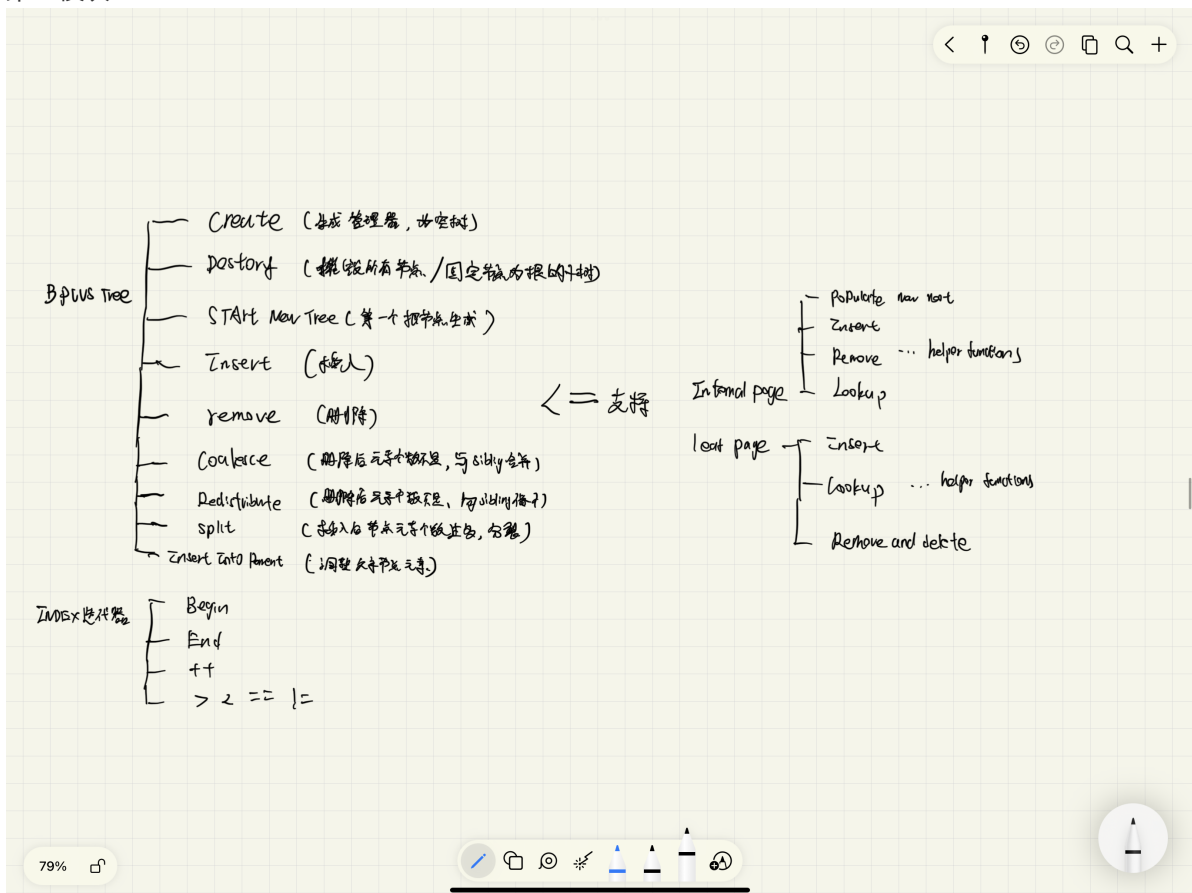 Bplus Tree
Create (生成管理器, 为空树)
Destory (摧毁所有节点/固定节点为根的子树)
START New Tree (第一个根节点生成)
Insert (插入)
remove (删除)
Coalesce (删除后元素个数不足, 与sibling合并)
Redistribute (删除后元素个数不足、与sibling借)
split (插入后节点元素个数过多, 分裂)
Insert Into Parent (调整父亲节点元素)
INDEX迭代器
Begin
End
++
> < == !=
<= 支持
Internal page
Populate new root
Insert
Remove ... helper functions
Lookup
leaf page
Insert
Lookup ... helper functions
Remove and delete
79%